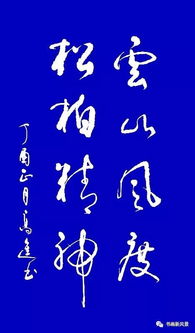 雲山風度
松柏精神
丁酉正月高進玉
书画新风景